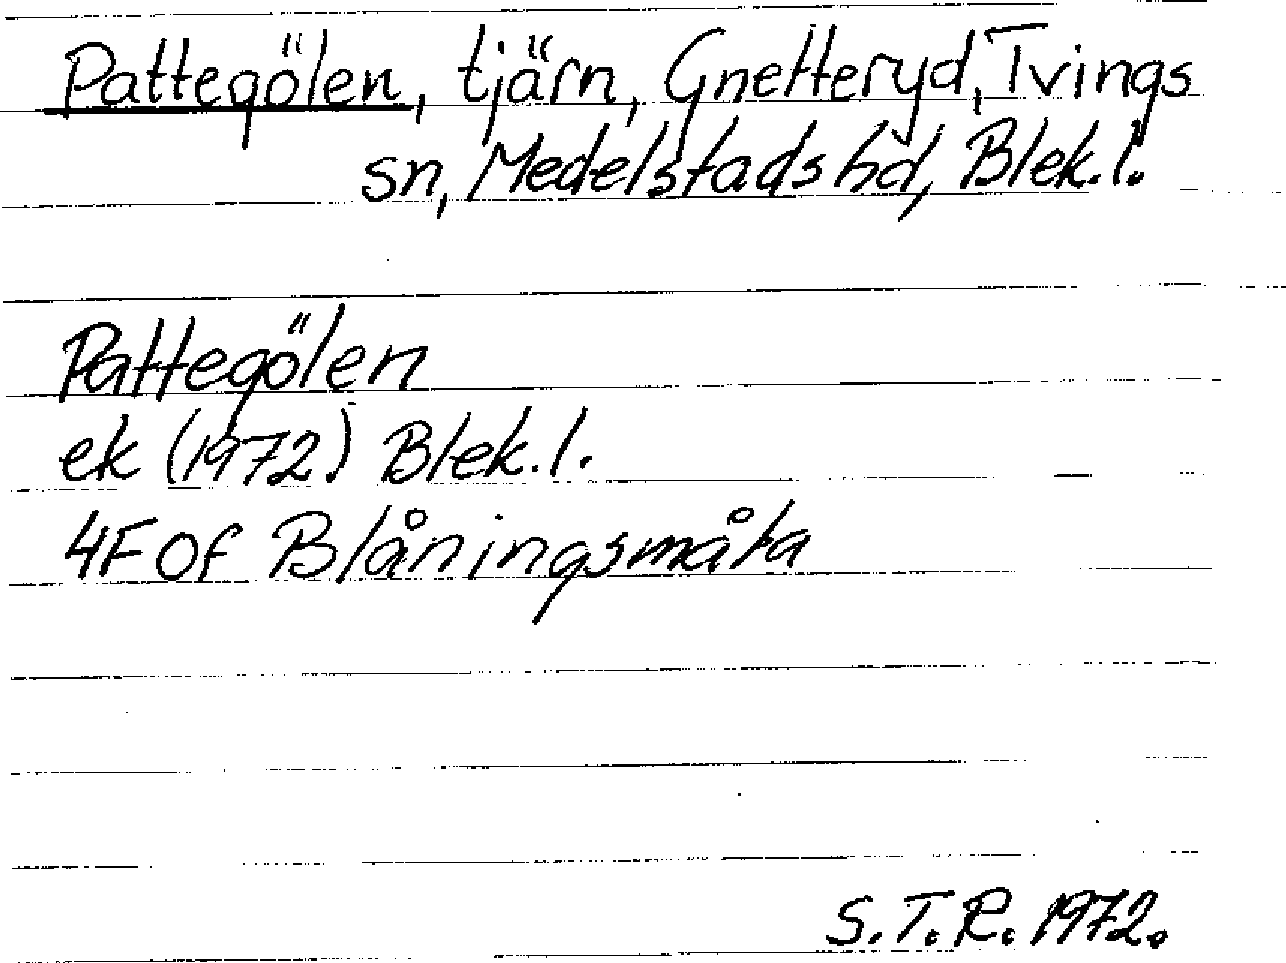 Pattegölen, tjärn, Gnetteryd, Tvings
sn, Medelstads hd, Blek.l.
Pattegölen
ek (1972) Blek.l.
4F0f Blåningsmåla
S.T.R. 1972.